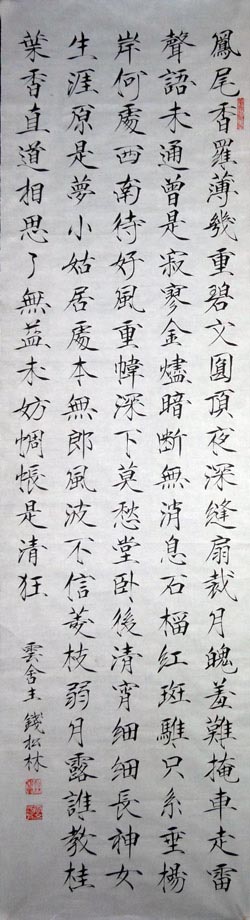 鳳尾香羅薄幾重碧文圓頂夜深縫扇裁月魄羞難掩車走雷
聲語未通曾是寂寥金燼暗断無消息石榴紅斑騅只系垂楊
岸何處西南待好風重幃深下莫愁堂卧後清宵細細長神女
生涯原是夢小姑居處本無郎風波不信菱枝弱月露誰教桂
葉香直道相思了無益未妨惆悵是清狂
雲舍主 錢松林